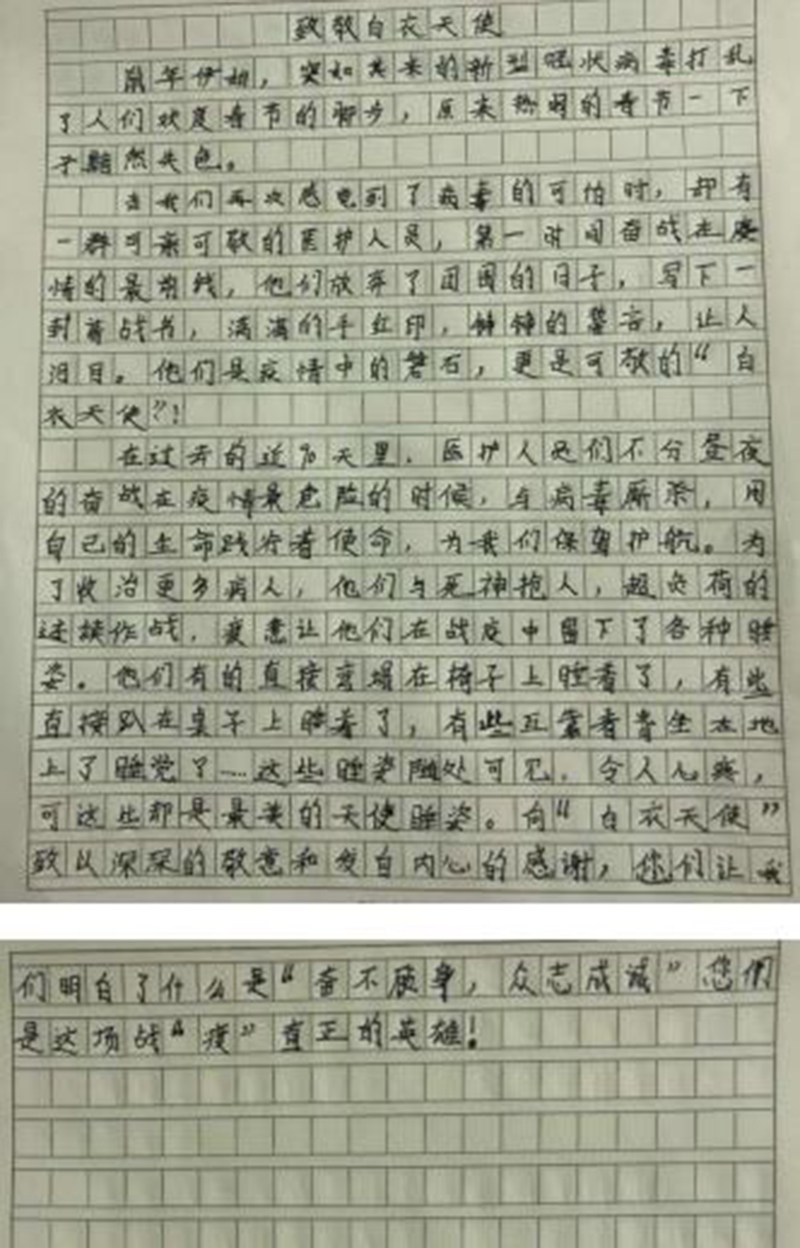 致敬白衣天使
鼠年伊始，突如其来的新型冠状病毒打乱
了人们欢度春节的脚步，原来热闹的春节一下
子黯然失色。
当我们再次感觉到了病毒的可怕时，却有
一群可亲可敬的医护人员，第一时间奋战在疫
情的最前线，他们放弃了团圆的日子，写下一
封首战书，满满的手红印，铮铮的誓言，让人
泪目。他们是疫情中的磐石，更是可敬的“白
衣天使”！
在过去的近70天里，医护人员们不分昼夜
的奋战在疫情最危险的时候，与病毒厮杀，用
自己的生命践行着使命，为我们保驾护航。为
了收治更多病人，他们与死神抢人，超负荷的
连续作战，疲惫让他们在战疫中留下了各种睡
姿。他们有的直接弯塌在椅子上睡着了，有些
直接趴在桌子上睡着了，有些互靠着背坐在地
上了睡觉了……这些睡姿随处可见，令人心疼，
可这些却是最美的天使睡姿。向“白衣天使”
致以深深的敬意和发自内心的感谢，您们让我
们明白了什么是“奋不顾身，众志成诚”您们
是这项战“疫”真正的英雄！